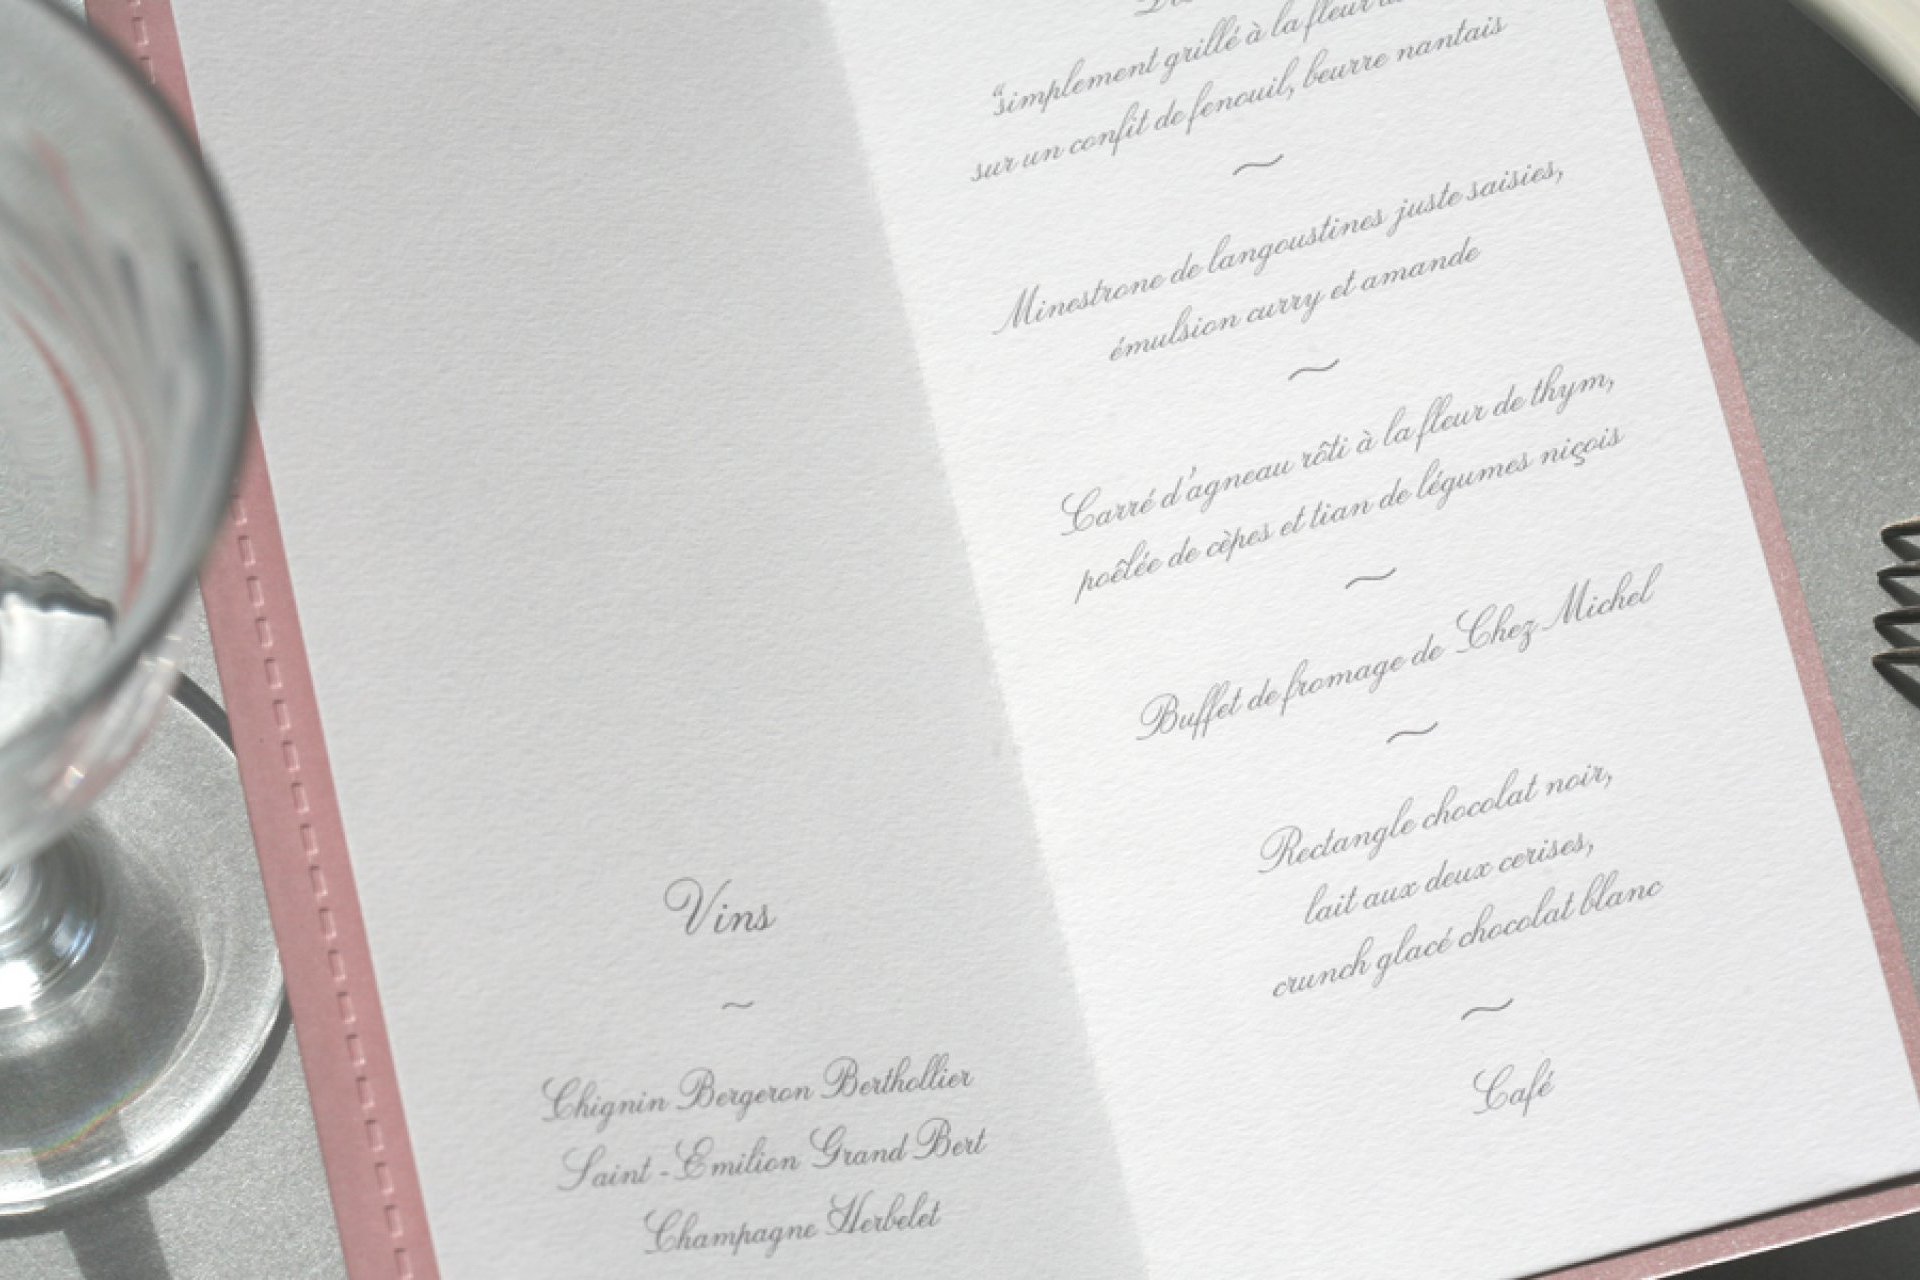 Vins
~
Chignin Bergeron Berthollier
Saint-Emilion Grand Bert
Champagne Herbelet
"simplement grillé à la fleur
sur un confit de fenouil, beurre nantais
~
Minestrone de langoustines juste saisies,
émulsion curry et amande
~
Carré d'agneau rôti à la fleur de thym,
poêlée de cèpes et tian de légumes niçois
~
Buffet de fromage de Chez Michel
~
Rectangle chocolat noir,
lait aux deux cerises,
crunch glacé chocolat blanc
~
Café